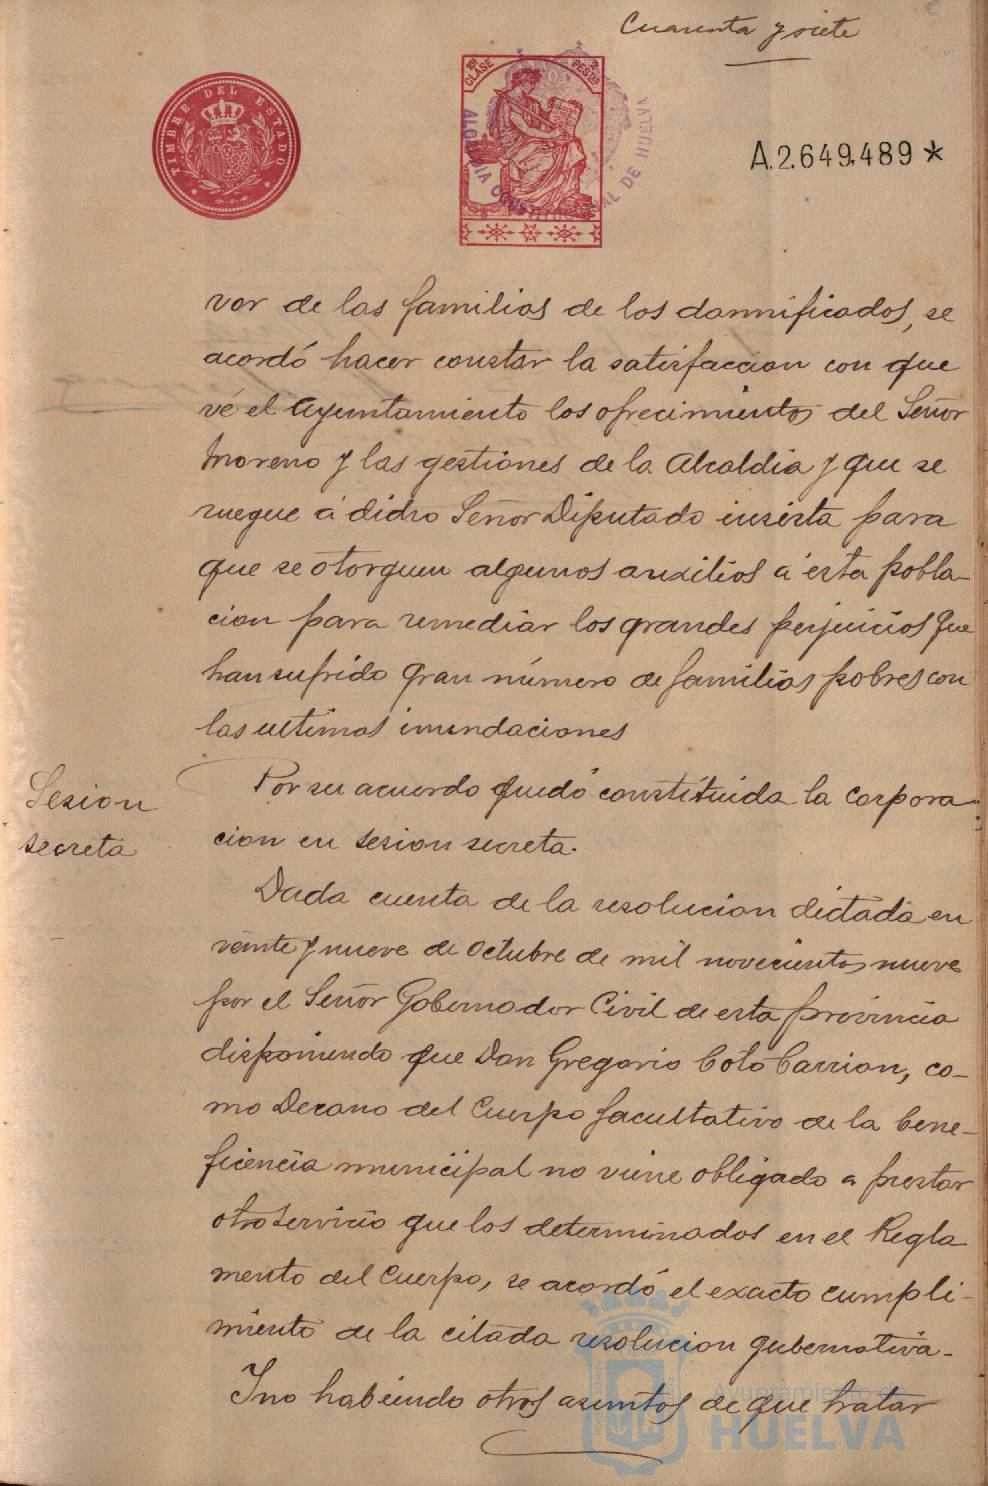 Cuarenta y siete
TIMBRE DEL ESTADO
EN CLASE
2 PESTAS
ALCALDIA CONSTITUCIONAL DE HUELVA
A.2.649.489 *
vor de las familias de los damnificados, se
acordó hacer constar la satisfaccion con que
vé el Ayuntamiento los ofrecimientos del Señor
Moreno y las gestiones de la Alcaldia y que se
ruegue á dicho Señor Diputado insista para
que se otorguen algunos auxilios á esta pobla-
cion para remediar los grandes perjuicios que
han sufrido gran número de familias pobres con
las ultimas inundaciones
Sesion
secreta
Por su acuerdo quedó constituida la corpora-
cion en sesion secreta.
Dada cuenta de la resolucion dictada en
veinte y nueve de Octubre de mil novecientos nueve
por el Señor Gobernador Civil de esta provincia
disponiendo que Don Gregorio Coto Carrion, co-
mo Decano del Cuerpo facultativo de la bene-
ficencia municipal no viene obligado a prestar
otro servicio que los determinados en el Regla
mento del Cuerpo, se acordó el exacto cumpli-
miento de la citada resolucion gubernativa.
Y no habiendo otros asuntos de que tratar
Ayuntamiento de
HUELVA